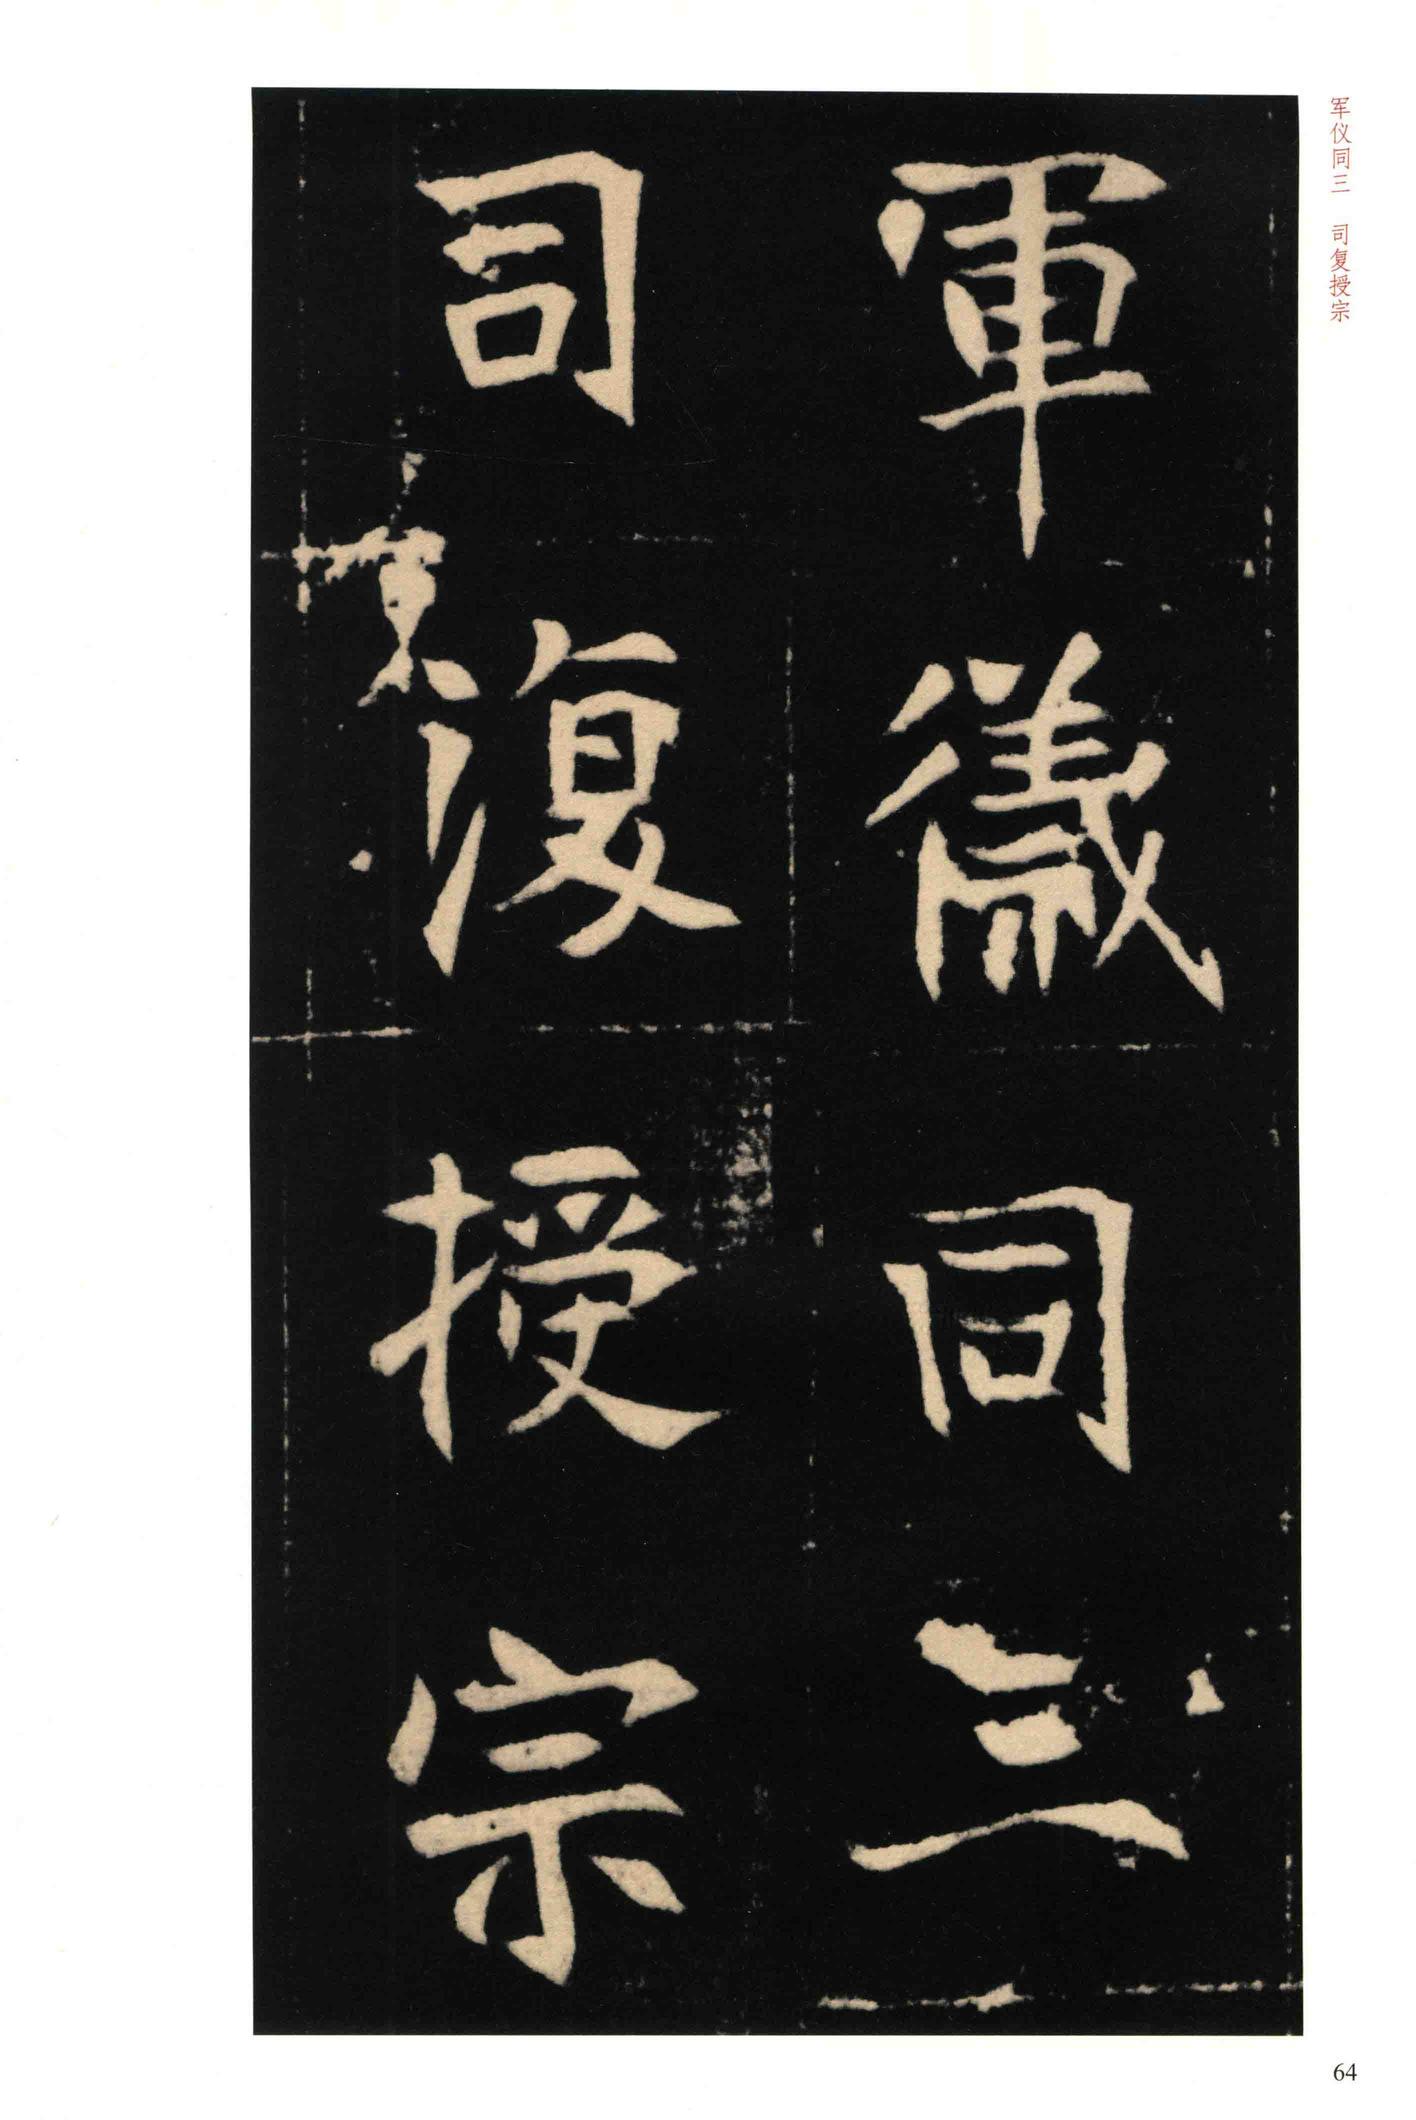 軍儀同三
司復授宗
军仪同三 司复授宗
64